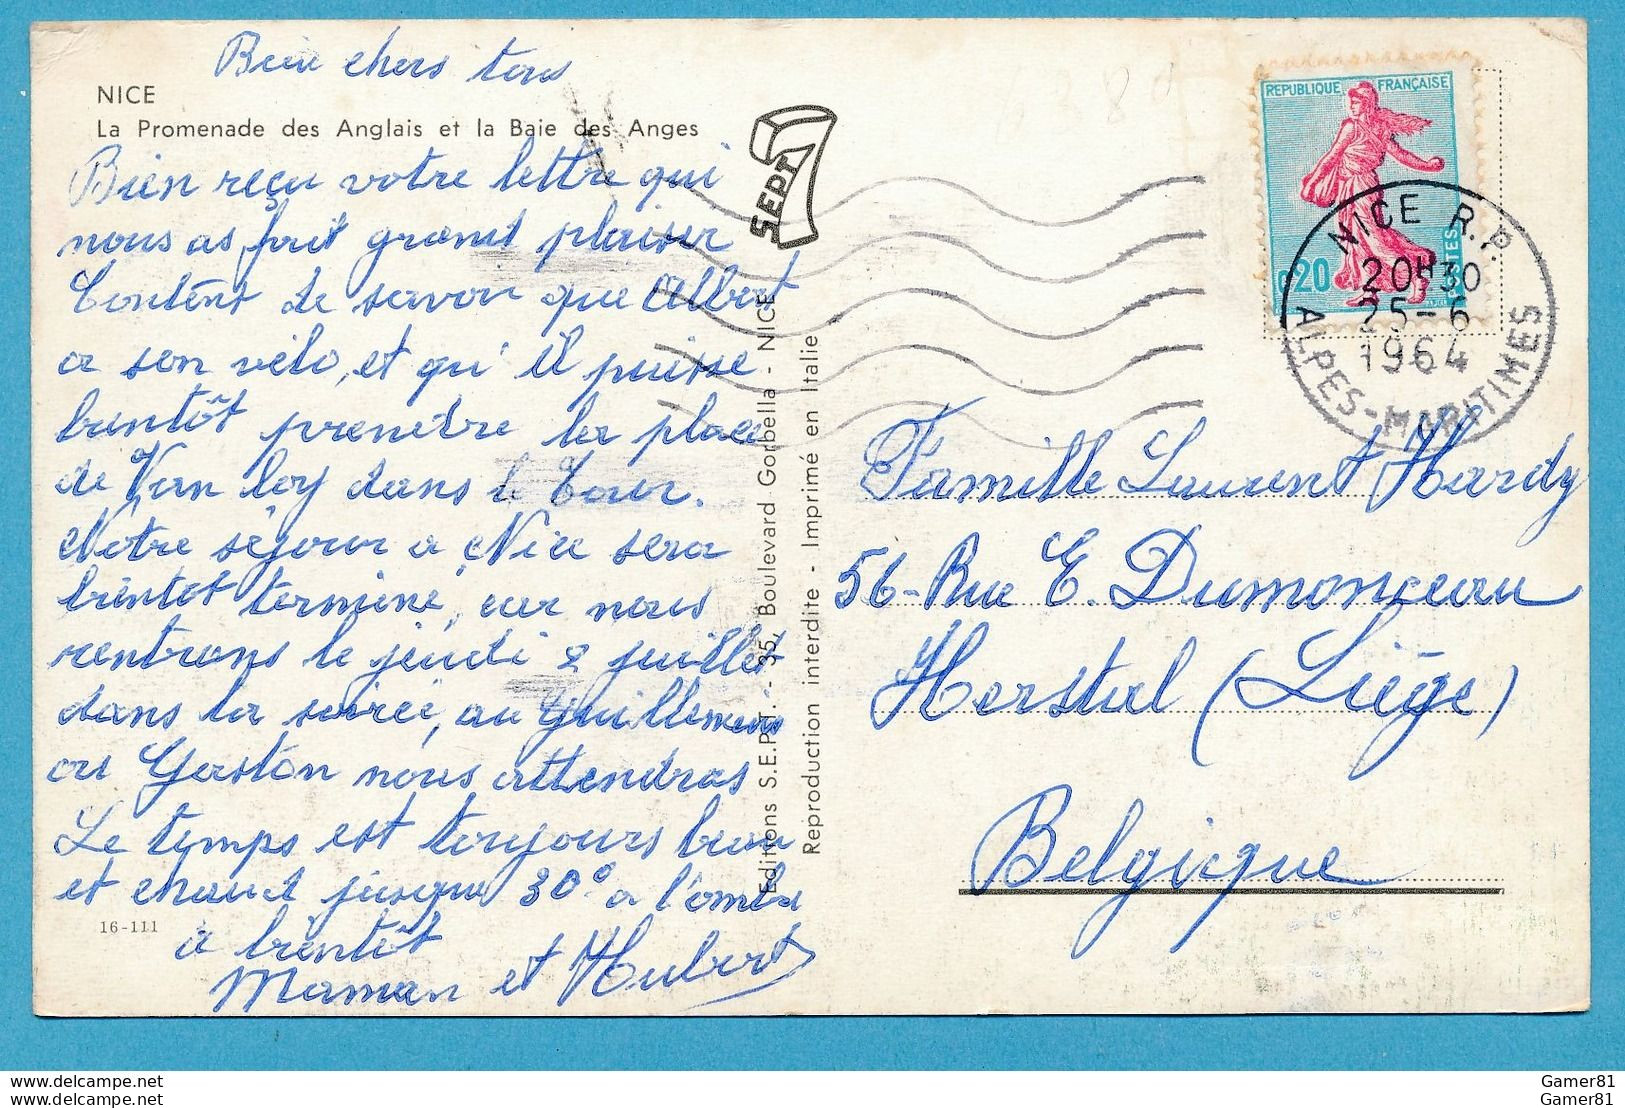 Bien chers tous
NICE
La Promenade des Anglais et la Baie des Anges
Bien reçu votre lettre qui
nous as fait grand plaisir
Contents de savoir que Albert
a son vélo, et qu'il puisse
bientôt prendre la place
de Van loy dans le tour.
Notre séjour a Nice sera
bientot terminé, car nous
rentrons le jeudi 2 juillet
dans la soirée, au Guillemins
ou Gaston nous attendras
Le temps est toujours beau
et chaud jusque 30° a l'ombre
a bientôt
Maman et Hubert
16-111
SEPT
Editions S.E.P.T. - 35, Boulevard Gorbella - NICE
Reproduction interdite - Imprimé en Italie
REPUBLIQUE FRANÇAISE
0,20
POSTES
NICE R.P.
20H30
25-6
1964
ALPES-MARITIMES
Famille Laurent Hardy
56-Rue E. Dumonceau
Herstal (Liège)
Belgique
posted on www.delcampe.net
posted on www.delcampe.net
Gamer81
Gamer81